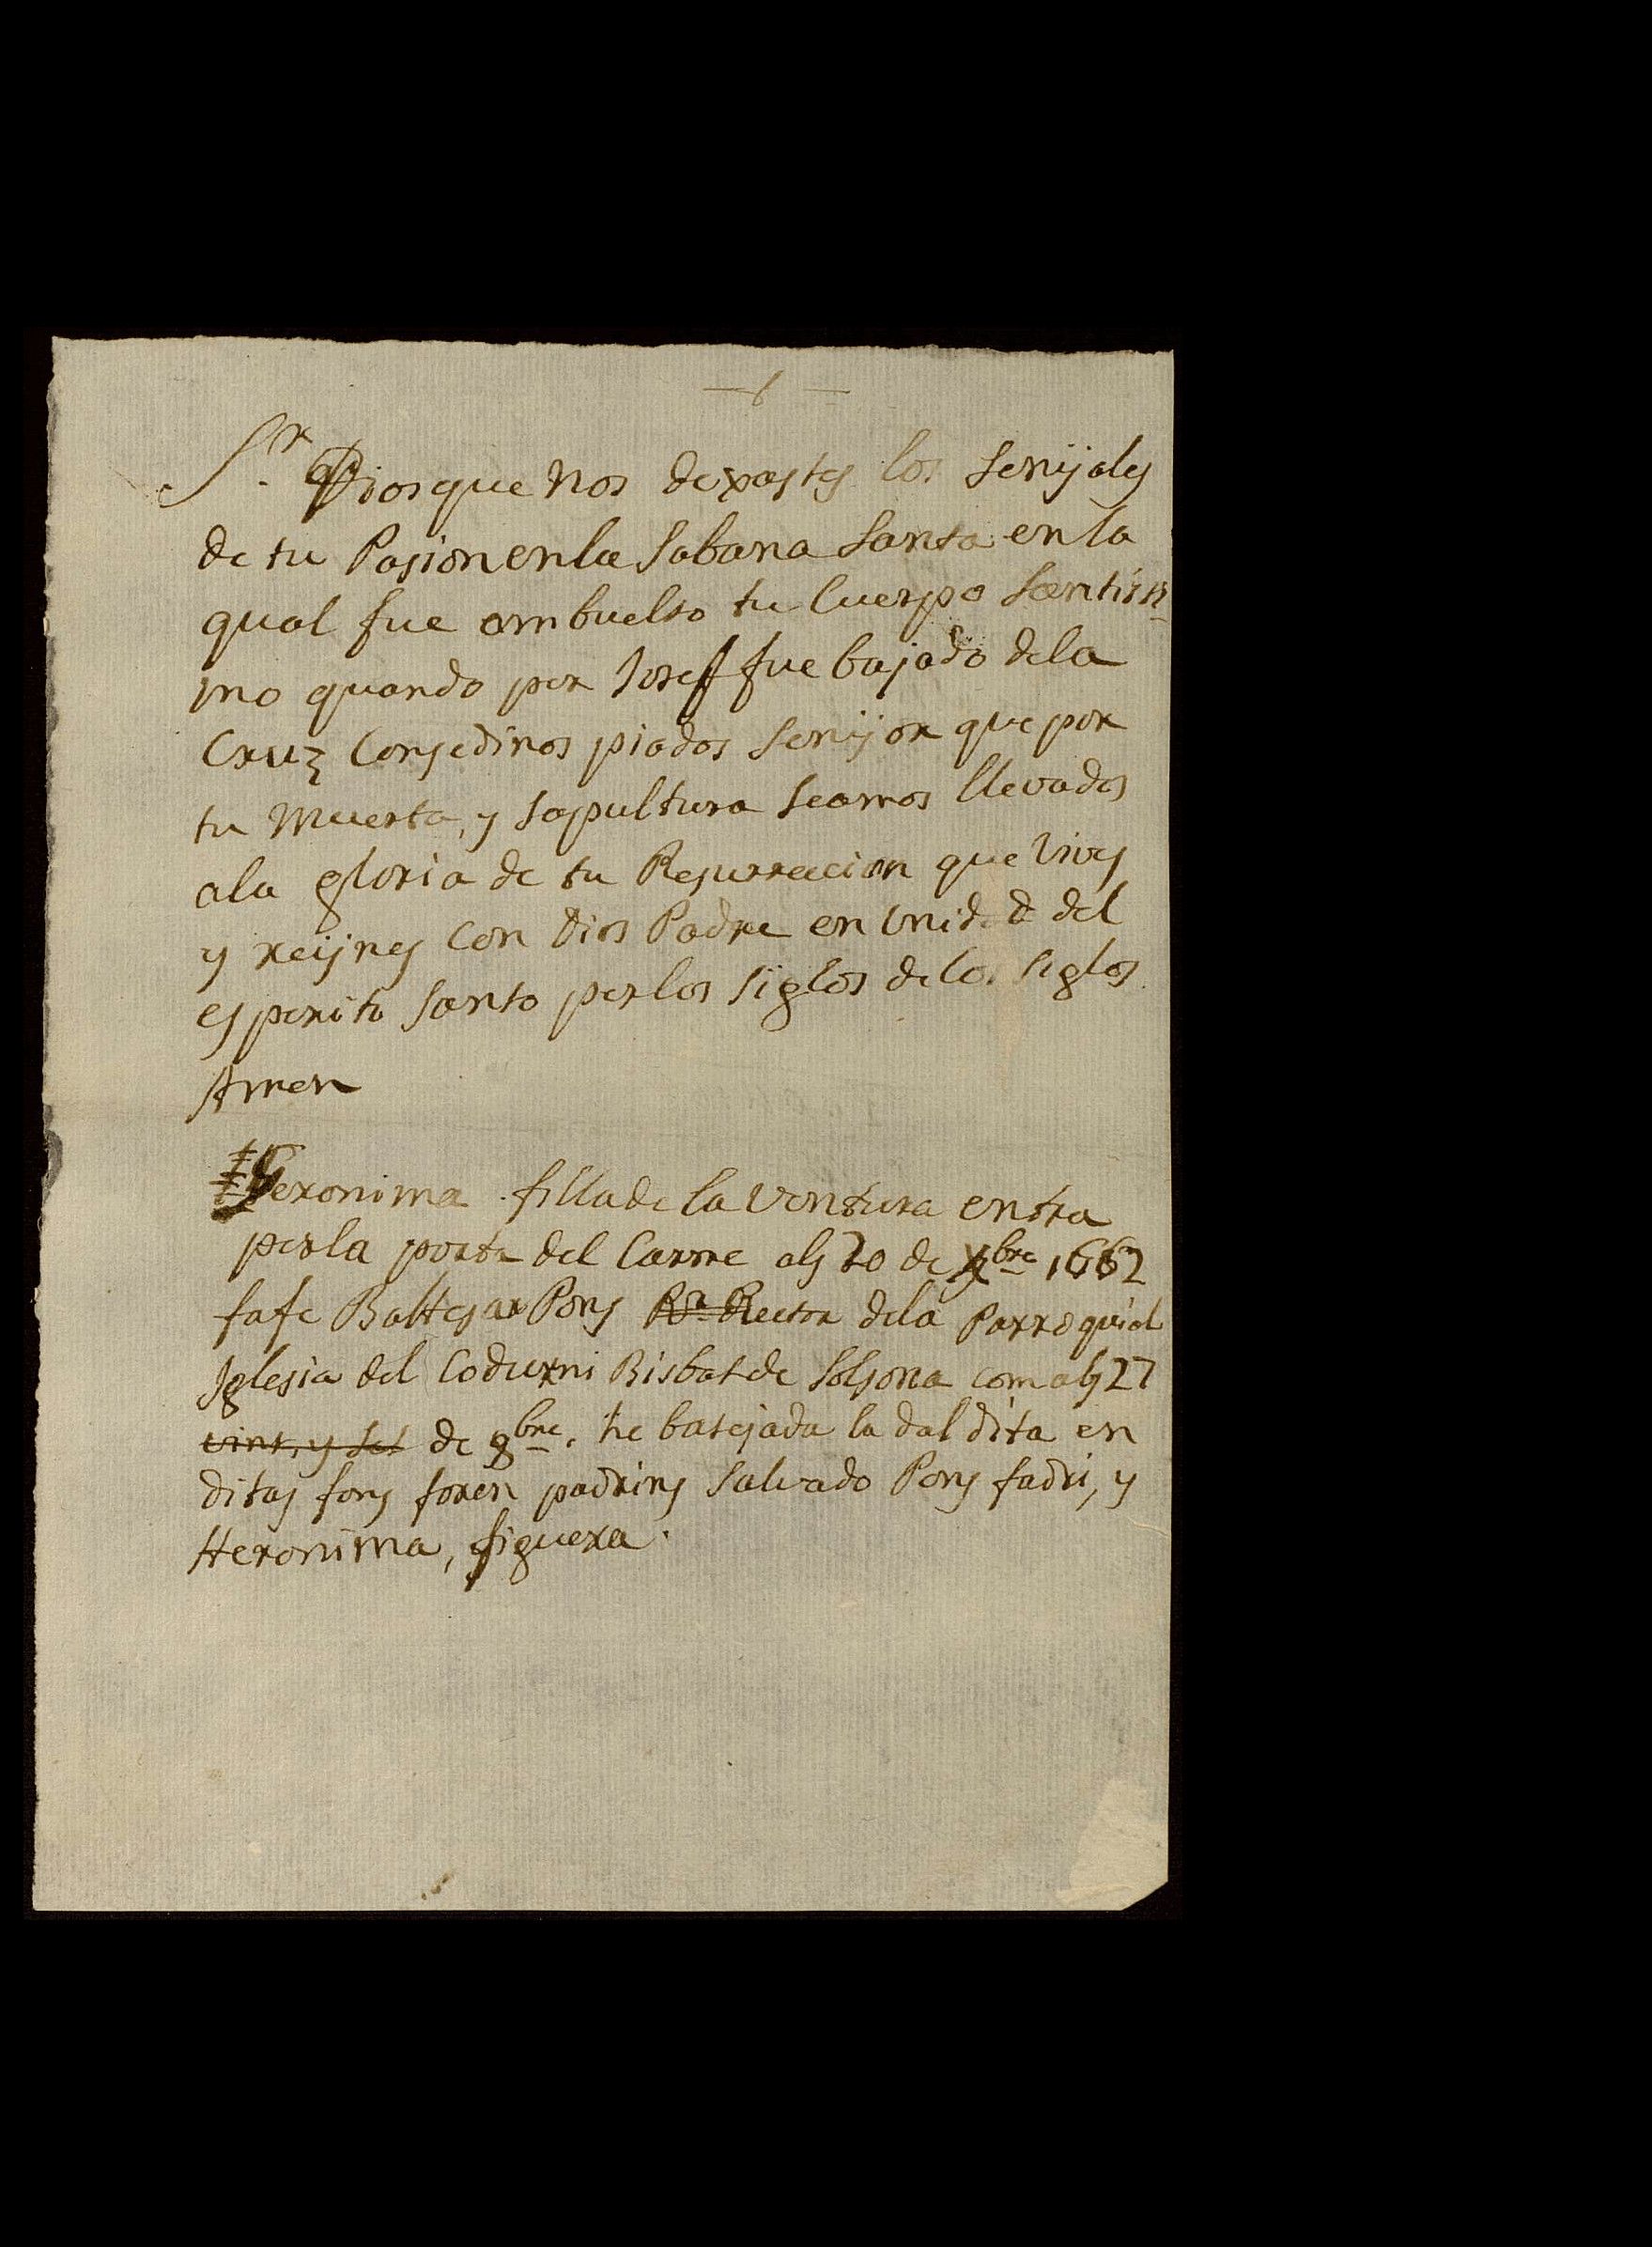 S.r Dios que nos dexastes los senijales
de tu Pasion en la Sabana Santa en la
qual fue ambuelto tu Cuerpo Santisi-
mo quando per Josef fue bajado dela
Cruz Consedinos piados Senijor que por
tu Muerta, y Sepultura seamos llevados
ala gloria de tu Resurreccion que vives
y reijnes Con Dios Padre en Unidad del
esperito santo per los siglos delos siglos
Amen
Geronima filla de la Ventura entra
per la porta del Carme als 20 de Xbre 1662
fafe Baltesar Pons Rector dela Parroquial
Iglesia del Codurni Bisbat de Solsona com als 27
vint, y set de 9bre. he batejada la dal dita en
ditas fons foren padrins Salvado Pons fadri, y
Heronima, figuera.